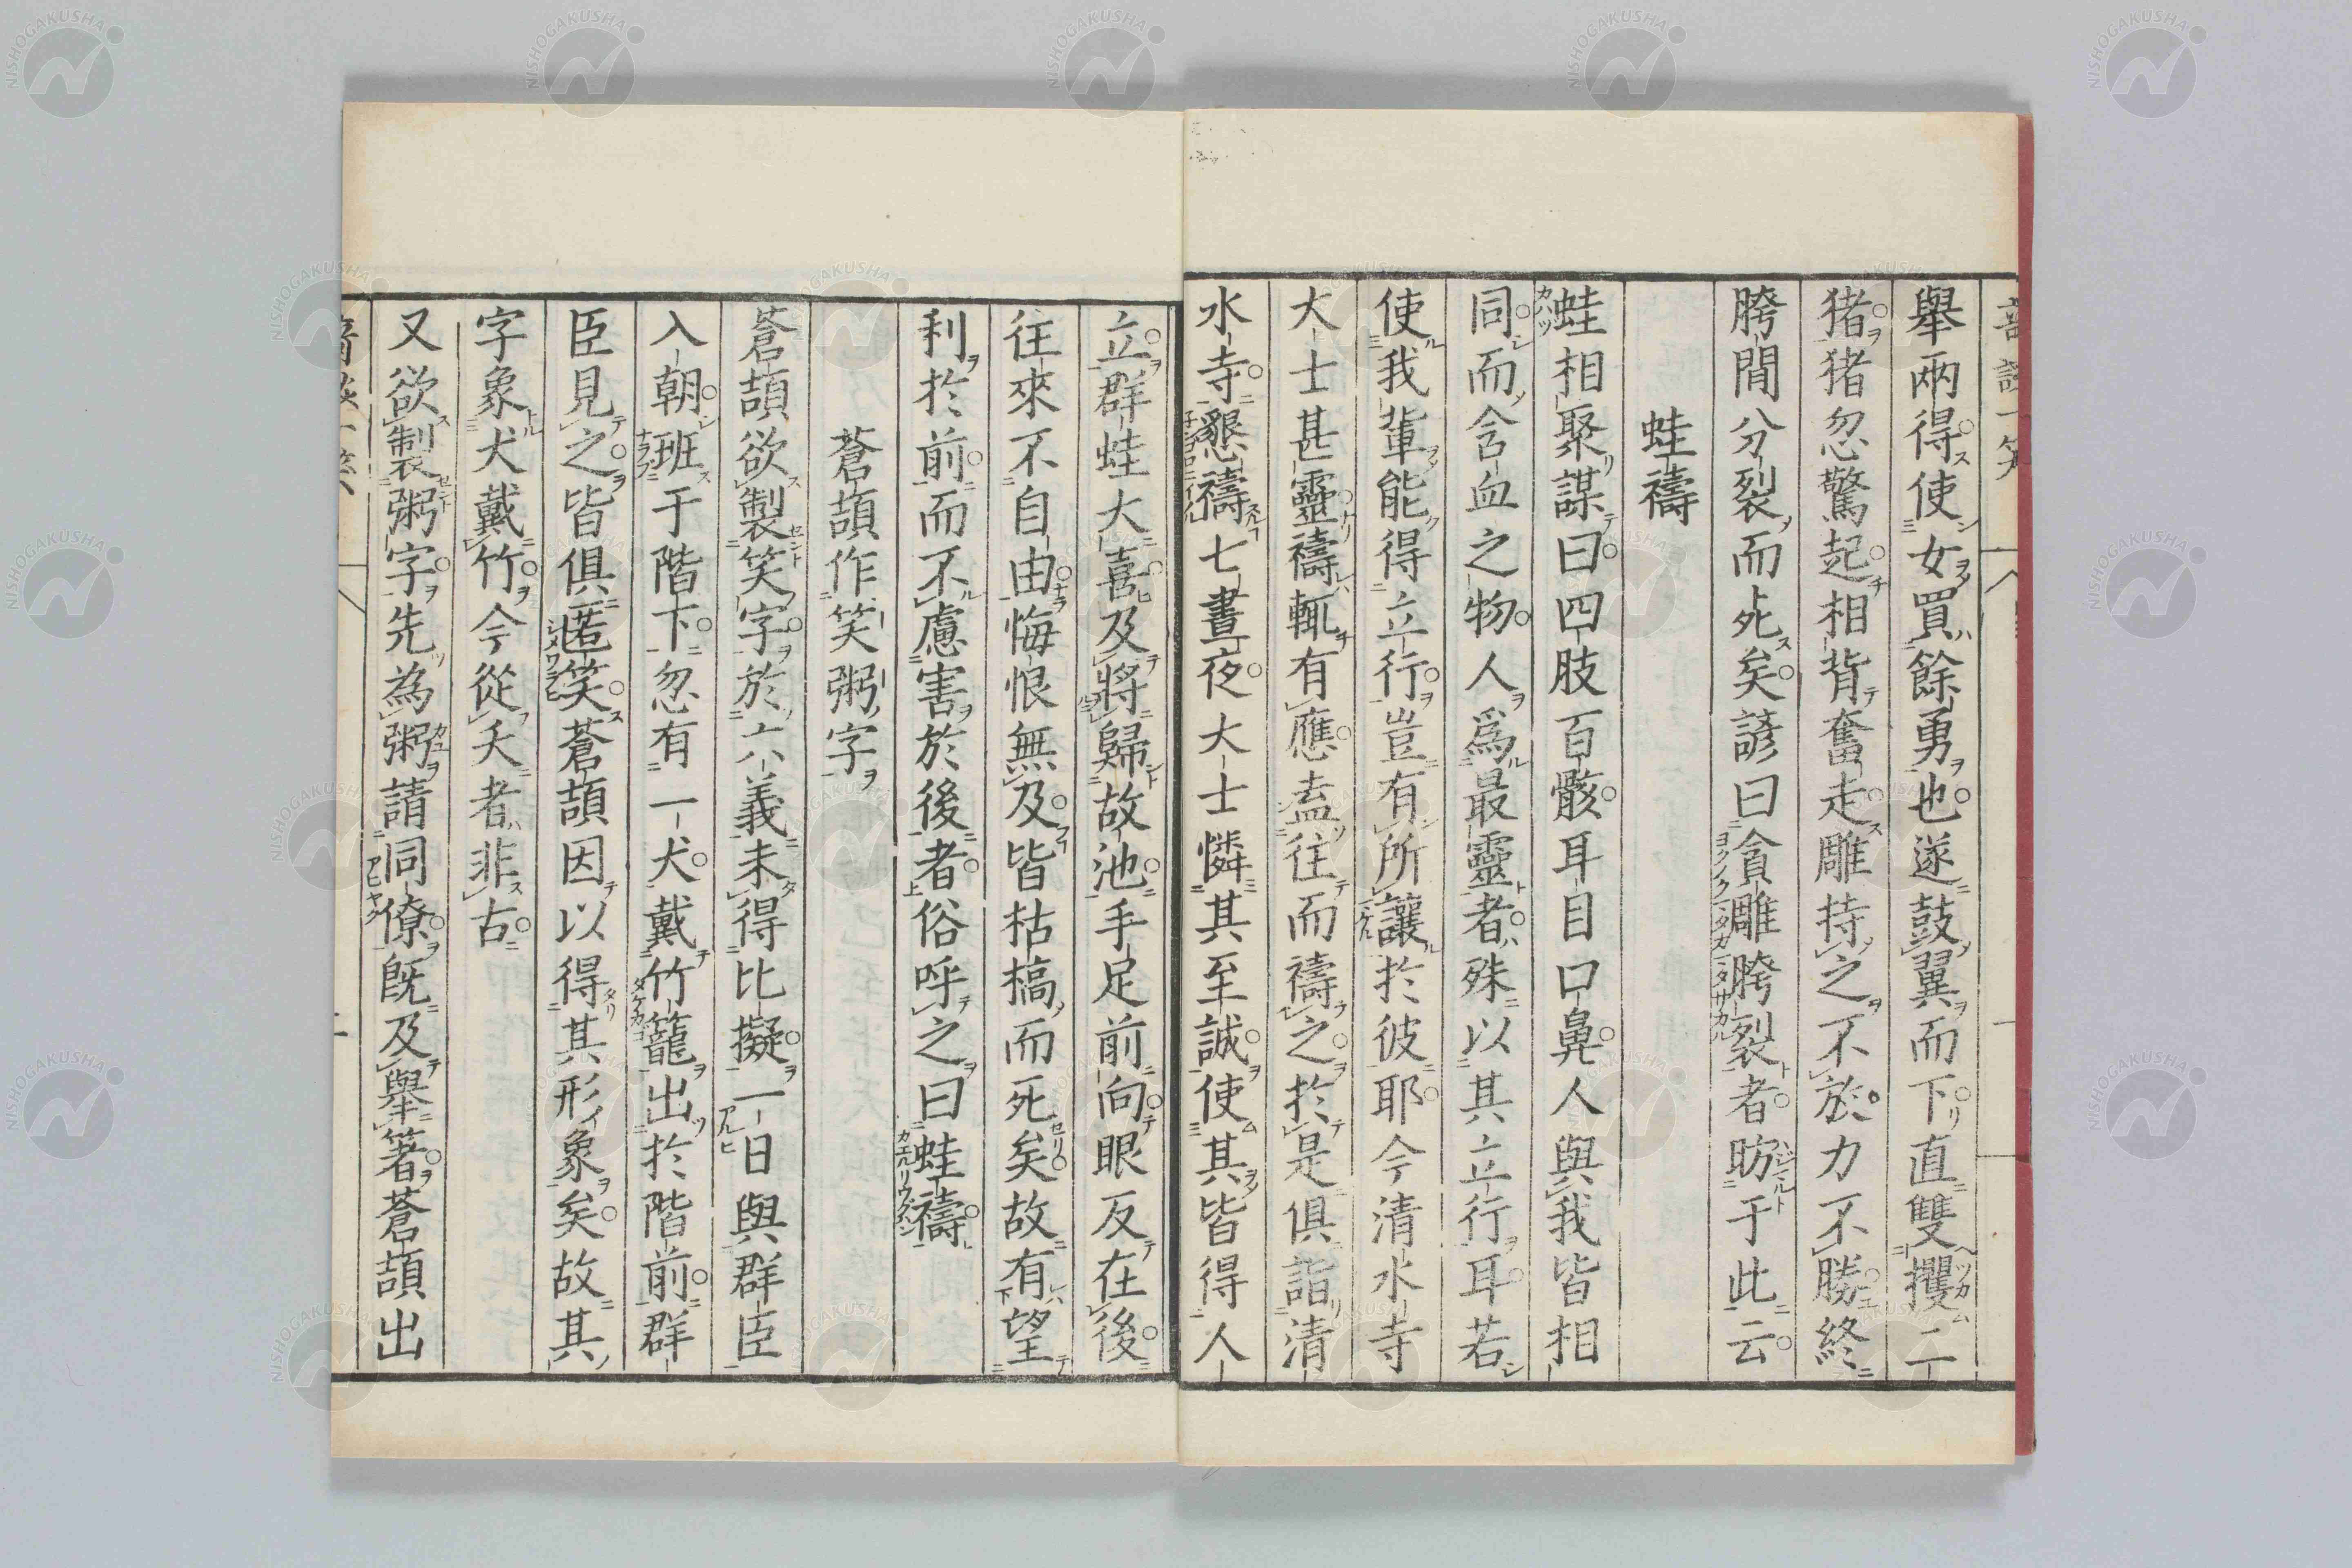 舉兩得使女買餘勇也遂鼓翼而下直雙攫二
猪猪忽驚起相背奮走雕持之不放力不勝終
胯間分裂而死矣諺曰貪雕胯裂者昉于此云
蛙禱
蛙相聚謀曰四肢百骸耳目口鼻人與我皆相
同而含血之物人爲最靈者殊以其立行耳若
使我輩能得立行豈有所讓於彼耶今清水寺
大士甚靈禱輒有應盍往而禱之於是俱詣清
水寺懇禱七晝夜大士憐其至誠使其皆得人
立群蛙大喜及將歸故池手足前向眼反在後
往來不自由悔恨無及皆枯槁而死矣故有望
利於前而不慮害於後者俗呼之曰蛙禱
蒼頡作笑粥字
蒼頡欲製笑字於六義未得比擬一日與群臣
入朝班于階下忽有一犬戴竹籠出於階前群
臣見之皆俱匿笑蒼頡因以得其形象矣故其
字象犬戴竹今從夭者非古
又欲製粥字先為粥請同僚既及舉箸蒼頡出